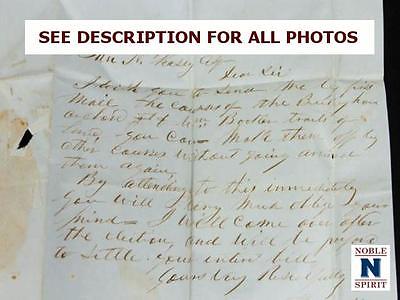 SEE DESCRIPTION FOR ALL PHOTOS
Dear Sir
I wish you to send me by first
Mail the courses of the
tracts of
land, you can make them off by
other courses without going around
them again,
By attending to this immediately
you will very much oblige your
friend I will come over after
the election, and will be
to settle your entire bill
Yours Very Respectfully
NOBLE
N
SPIRIT